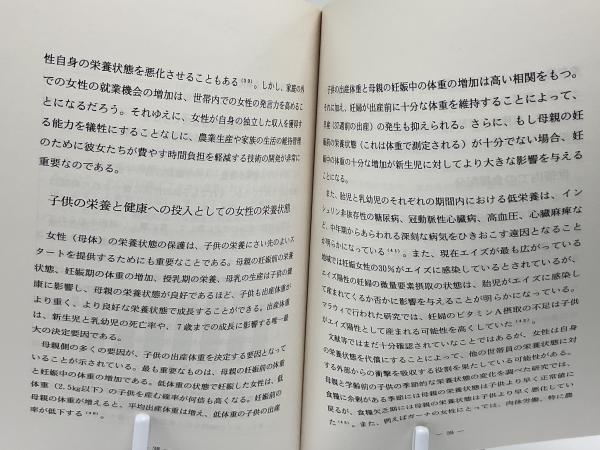 性自身の栄養状態を悪化させることもある(39)。しかし、家族の外
での女性の就業機会の増加は、世帯内での女性の発言力を高めるこ
とになるだろう。それゆえに、女性が自身の独立した収入を獲得す
る能力を犠牲にすることなしに、農業生産や家族の生活の維持管理
のために彼女たちが費やす時間負担を軽減する技術の開発が非常に
重要なのである。
子供の栄養と健康への投入としての女性の栄養状態
女性（母体）の栄養状態の保護は、子供の栄養にさい先のよいス
タートを提供するためにも重要なことである。母親の妊娠前の栄養
状態、妊娠期の体重の増加、授乳期の栄養、母乳の生産は子供の健
康に影響し、母親の栄養状態が良好であるほど、子供も出産体重が
より重く、より良好な栄養状態で成長することができる。出産体重
は、新生児と乳幼児の死亡率や、7歳までの成長に影響する唯一最
大の決定要因である。
母親側の多くの要因が、子供の出産体重を決定する要因となって
いることが示されている。最も重要なものは、母親の妊娠前の体重
と妊娠中の体重の増加である。低体重の状態で妊娠した女性は、低
体重（2.5kg以下）の子供を産む確率が何倍も高くなる。妊娠前の
母親の体重が増えると、平均出産体重は増え、低体重の子供の出産
率が低下する(40)。
子供の出産体重と母親の妊娠中の体重の増加は高い相関をもつ。
それに加え、妊婦が出産前に十分な体重を維持することによって、
産（37週前の出産）の発生も抑えられる。さらに、もし母親の妊
前の栄養状態（これは体重で測定される）が十分でない場合、妊
中の体重の十分な増加が新生児に対してより大きな影響を与える
とになる。
また、胎児と乳幼児のそれぞれの期間内における低栄養は、イン
シュリン非依存性の糖尿病、冠動脈性心臓病、高血圧、心臓麻痺な
ど、中年期からあらわれる深刻な病気をひきおこす遠因となること
が明らかになっている(41)。また、現在エイズが最も広がっている
地域では妊娠女性の30％がエイズに感染しているとされているが、
エイズ陽性の妊婦の微量要素摂取の状態は、胎児がエイズに感染し
て産まれてくるか否かに影響を与えることが明らかになっている。
マラウィで行われた研究では、妊婦のビタミンA摂取の不足は子供
がエイズ陽性として産まれる可能性を高くしていた(42)。
文献等ではまだ十分確認されていないことではあるが、女性は自身
の栄養状態を代償にすることによって、他の世帯員の栄養状態に対
する外部からの衝撃を吸収する役割を果たしている可能性がある。
母親と学齢前の子供の季節的な栄養状態の変化を調べた研究では、
食糧に余剰がある季節には母親の栄養状態は子供より早く正常値に
戻るが、食糧欠乏期には母親の栄養状態は子供より早く悪化してい
た(43)。また、例えばガーナの女性にとっては、肉体労働、特に農